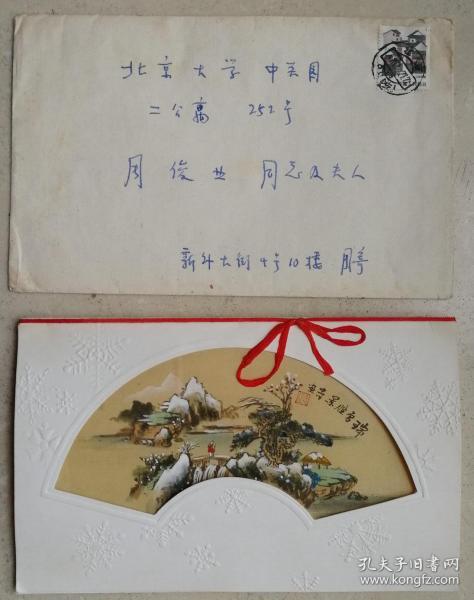 北京大学 中关园
二公寓 252号
周俊业 同志及夫人
新外大街4号10楼
孔夫子旧书网
www.kongfz.com